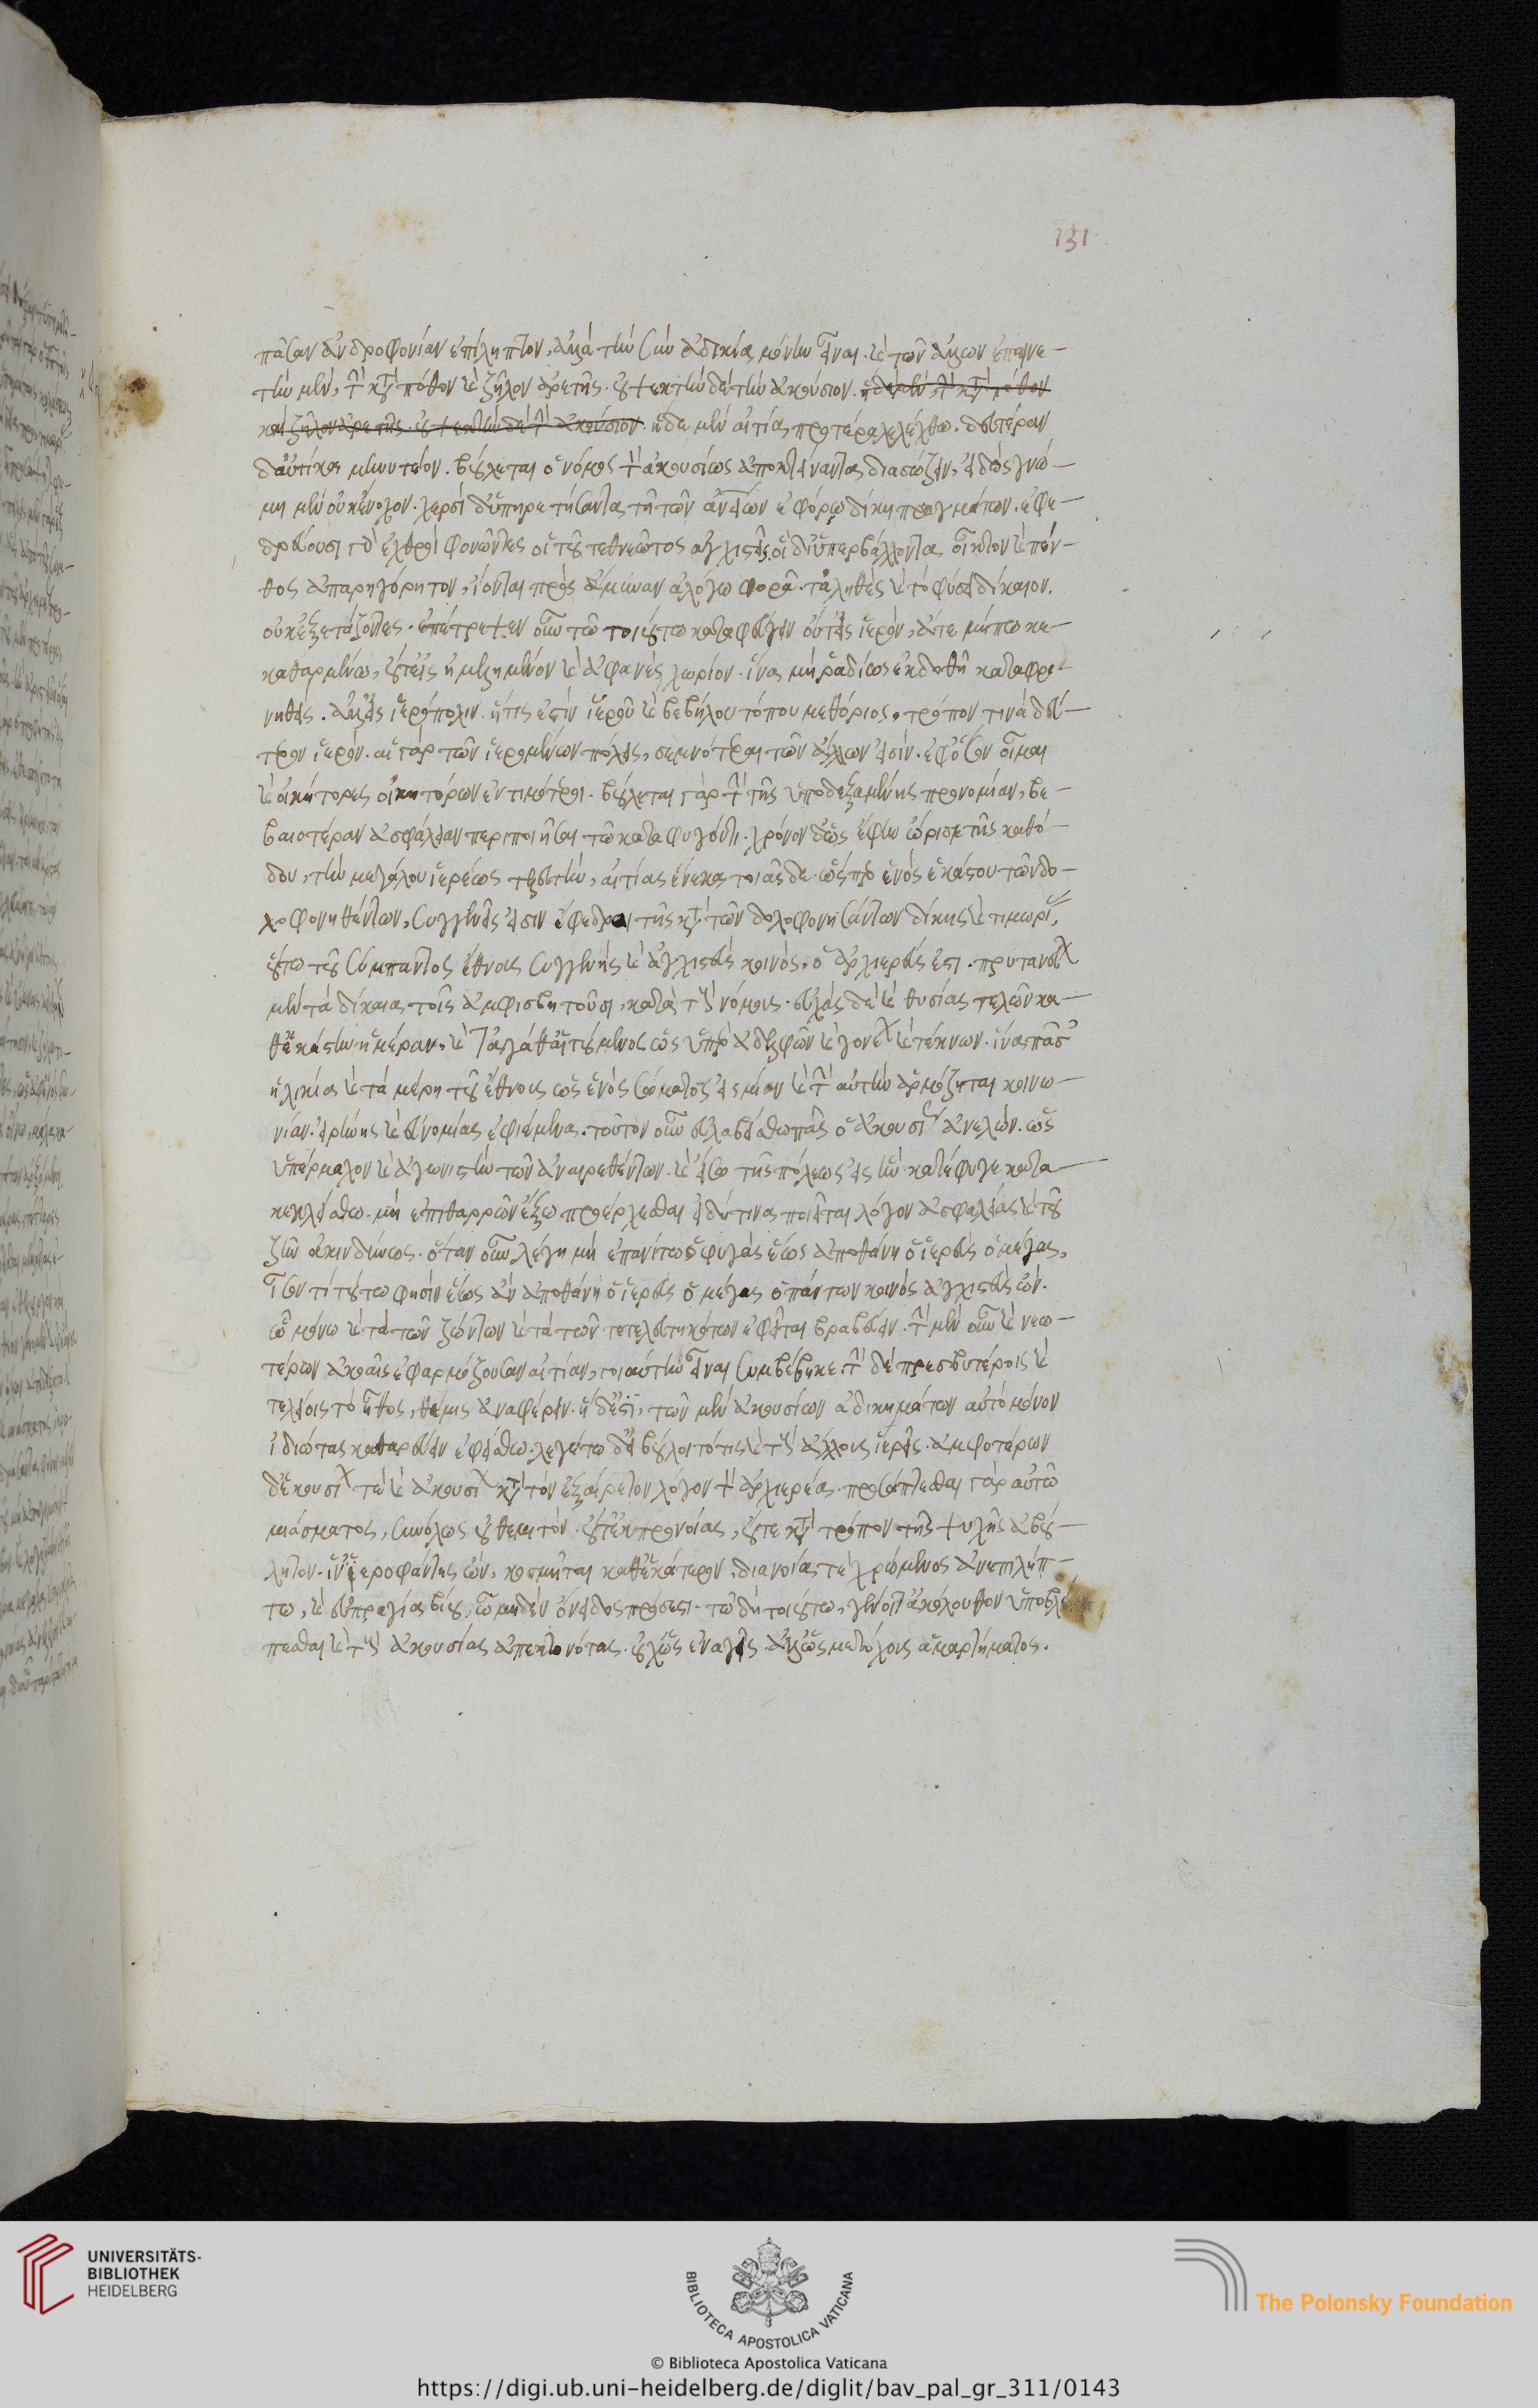 131
πᾶσαν ἀνδροφονίαν ἐπίληπτον, ἀλλὰ τὴν σὺν ἀδικίᾳ μόνην εἶναι. καὶ τῶν ἄλλων ἐπαινε-
τὴν μὲν, τὴν κατὰ πόθον καὶ ζῆλον ἀρετῆς. οὐ ψεκτὴν δὲ τὴν ἀκούσιον. ἥδε μὲν, τὴν κατὰ πόθον
καὶ ζῆλον ἀρετῆς. οὐ ψεκτὴν δὲ τὴν ἀκούσιον. ἥδε μὲν αἰτία προτέρα λελέχθω. δευτέραν
δ' αὐτίκα μηνυτέον. βούλεται ὁ νόμος τὸν ἀκουσίως ἀποκτείναντα διασώζειν, εἰδὼς γνώ-
μῃ μὲν οὐκ ἔνοχον. χερσὶ δ' ὑπηρετήσαντα τῇ τῶν ἀνθρωπείων ἐφόρῳ δίκῃ πραγμάτων. ἐφε-
δρεύουσι γὰρ ἐχθροὶ φονῶντες οἱ τοῦ τεθνεῶτος ἀγχιστεῖς, οἳ δι' ὑπερβάλλοντα οἶκτον καὶ πέν-
θος ἀπαρηγόρητον, ἵονται πρὸς ἄμυναν ἀλόγῳ φορᾷ. τἀληθὲς καὶ τὸ φύσει δίκαιον.
οὐκ ἐξετάζοντες. ἐπέτρεψεν οὖν τῷ τοιούτῳ καταφεύγειν οὔτ' εἰς ἱερὸν, ἅτε μήπω κε-
καθαρμένῳ, οὔτ' εἰς ἠμελημένον καὶ ἀφανὲς χωρίον. ἵνα μὴ ῥᾳδίως ἐκδοθῇ καταφρο-
νηθείς. ἀλλ' εἰς ἱερόπολιν. ἥτις ἐστὶν ἱεροῦ καὶ βεβήλου τόπου μεθόριος, τρόπον τινὰ δεύ-
τερον ἱερόν. αἱ γὰρ τῶν ἱερωμένων πόλεις, σεμνότεραι τῶν ἄλλων εἰσίν. ἐφ' ὅσον οἶμαι
καὶ οἰκήτορες οἰκητόρων ἐντιμότεροι. βούλεται γὰρ τὴν τῆς ὑποδεξαμένης προνομίαν, βε-
βαιοτέραν ἀσφάλειαν περιποιῆσαι τῷ καταφυγόντι. χρόνον δ' ὡς ἔφην ὥρισε τῆς καθό-
δου, τὴν μεγάλου ἱερέως τελευτὴν, αἰτίας ἕνεκα τοιᾶσδε. ὥσπερ ἑνὸς ἑκάστου τῶν δο-
λοφονηθέντων, συγγενεῖς εἰσιν ἔφεδροι τῆς κατὰ τῶν δολοφονησάντων δίκης καὶ τιμωρίας,
οὕτω τοῦ σύμπαντος ἔθνους συγγενὴς καὶ ἀγχιστεὺς κοινὸς, ὁ ἀρχιερεύς ἐστι. πρυτανεύων
μὲν τὰ δίκαια τοῖς ἀμφισβητοῦσι, κατὰ τοὺς νόμους. εὐχὰς δὲ καὶ θυσίας τελῶν κα-
θ' ἑκάστην ἡμέραν, καὶ τἀγαθὰ αἰτούμενος ὡς ὑπὲρ ἀδελφῶν καὶ γονέων καὶ τέκνων. ἵνα πᾶσα
ἡλικία καὶ τὰ μέρη τοῦ ἔθνους ὡς ἑνὸς σώματος εἰς μίαν καὶ τὴν αὐτὴν ἁρμόζηται κοινω-
νίαν. εἰρήνης καὶ εὐνομίας ἐφιέμενα. τοῦτον οὖν εὐλαβείσθω πᾶς ὁ ἀκουσίως ἀνελών. ὡς
ὑπέρμαχον καὶ ἀγωνιστὴν τῶν ἀναιρεθέντων. καὶ εἴσω τῆς πόλεως εἰς ἣν κατέφυγε κατα-
κεκλείσθω. μὴ ἐπιθαρρῶν ἔξω προέρχεσθαι εἰ δή τινα ποιεῖται λόγον ἀσφαλείας καὶ τοῦ
ζῆν ἀκινδύνως. ὅταν οὖν λέγῃ μὴ ἐπανίτω ὁ φυγὰς ἕως ἀποθάνῃ ὁ ἱερεὺς ὁ μέγας,
ἴσόν τι τούτῳ φησὶν ἕως ἂν ἀποθάνῃ ὁ ἱερεὺς ὁ μέγας ὁ πάντων κοινὸς ἀγχιστεὺς ὤν.
ᾧ μόνῳ καὶ τὰ τῶν ζώντων καὶ τὰ τῶν τετελευτηκότων ἐφεῖται βραβεύειν. τὴν μὲν οὖν καὶ νεω-
τέρων ἀκοαῖς ἐφαρμόζουσαν αἰτίαν, τοιαύτην εἶναι συμβέβηκε. τὴν δὲ πρεσβυτέροις καὶ
τελείοις τὸ ἦθος, θέμις ἀναφέρειν. ἡ δ' ἐστι, τῶν μὲν ἀκουσίων ἀδικημάτων αὐτὸ μόνον
ἰδιώτας καθαρεύειν ἐφείσθω. λεγέτω δ' εἰ βούλοιτό τις καὶ τοὺς ἄλλους ἱερεῖς. ἀμφοτέρων
δ' ἑκουσίων τε καὶ ἀκουσίων κατὰ τὸν ἐξαίρετον λόγον τὸν ἀρχιερέα. προσάπτεσθαι γὰρ αὐτῷ
μιάσματος, συνόλως οὐ θεμιτόν. οὔτ' ἐκ προνοίας, οὔτε κατὰ τρόπον τῆς ψυχῆς ἀβού-
λητον. ἵν' ἱεροφάντης ὢν, κοσμῆται καθ' ἑκάτερον. διανοίᾳ τε χρώμενος ἀνεπιλήπ-
τῳ, καὶ εὐπραγίᾳ βίου, ᾧ μηδὲν ὄνειδος πρόσεστι. τῷ δὴ τοιούτῳ, γένοιτ' ἀκόλουθον ὑποβλέ-
πεσθαι καὶ τοὺς ἀκουσίως ἀπεκτονότας. οὐχ ὡς ἐναγεῖς. ἀλλ' ὡς μετόχους ἁμαρτήματος.
UNIVERSITÄTS-
BIBLIOTHEK
HEIDELBERG
BIBLIOTECA APOSTOLICA VATICANA
The Polonsky Foundation
© Biblioteca Apostolica Vaticana
https://digi.ub.uni-heidelberg.de/diglit/bav_pal_gr_311/0143